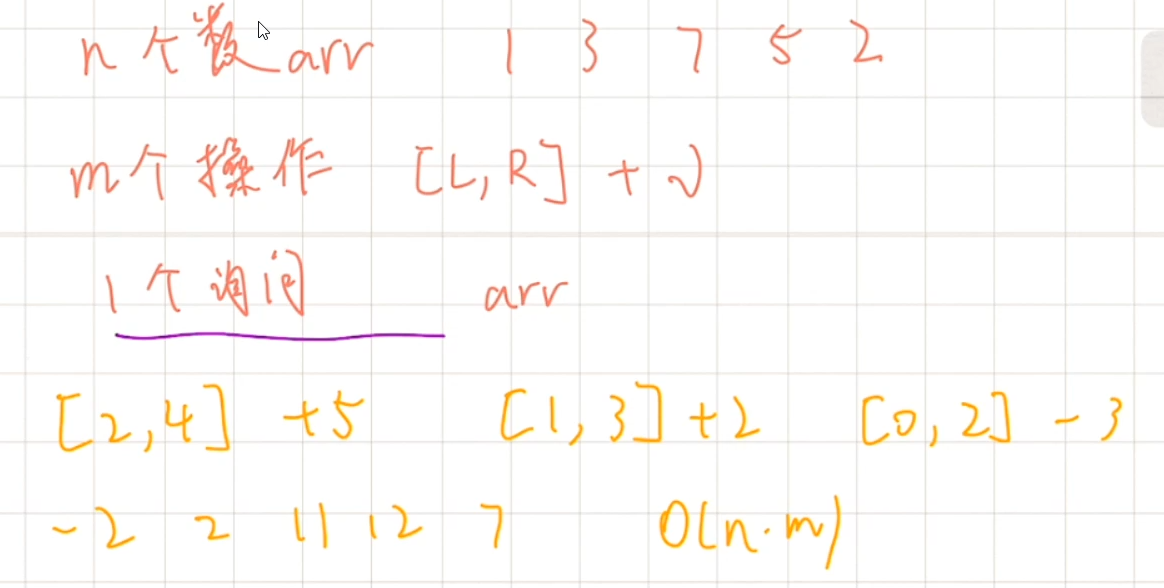 n 个 数 arr 1 3 7 5 2
m 个 操作 [L, R] + v
1 个 询问 arr
[2,4] +5 [1,3] +2 [0,2] -3
-2 2 11 12 7 O(n·m)